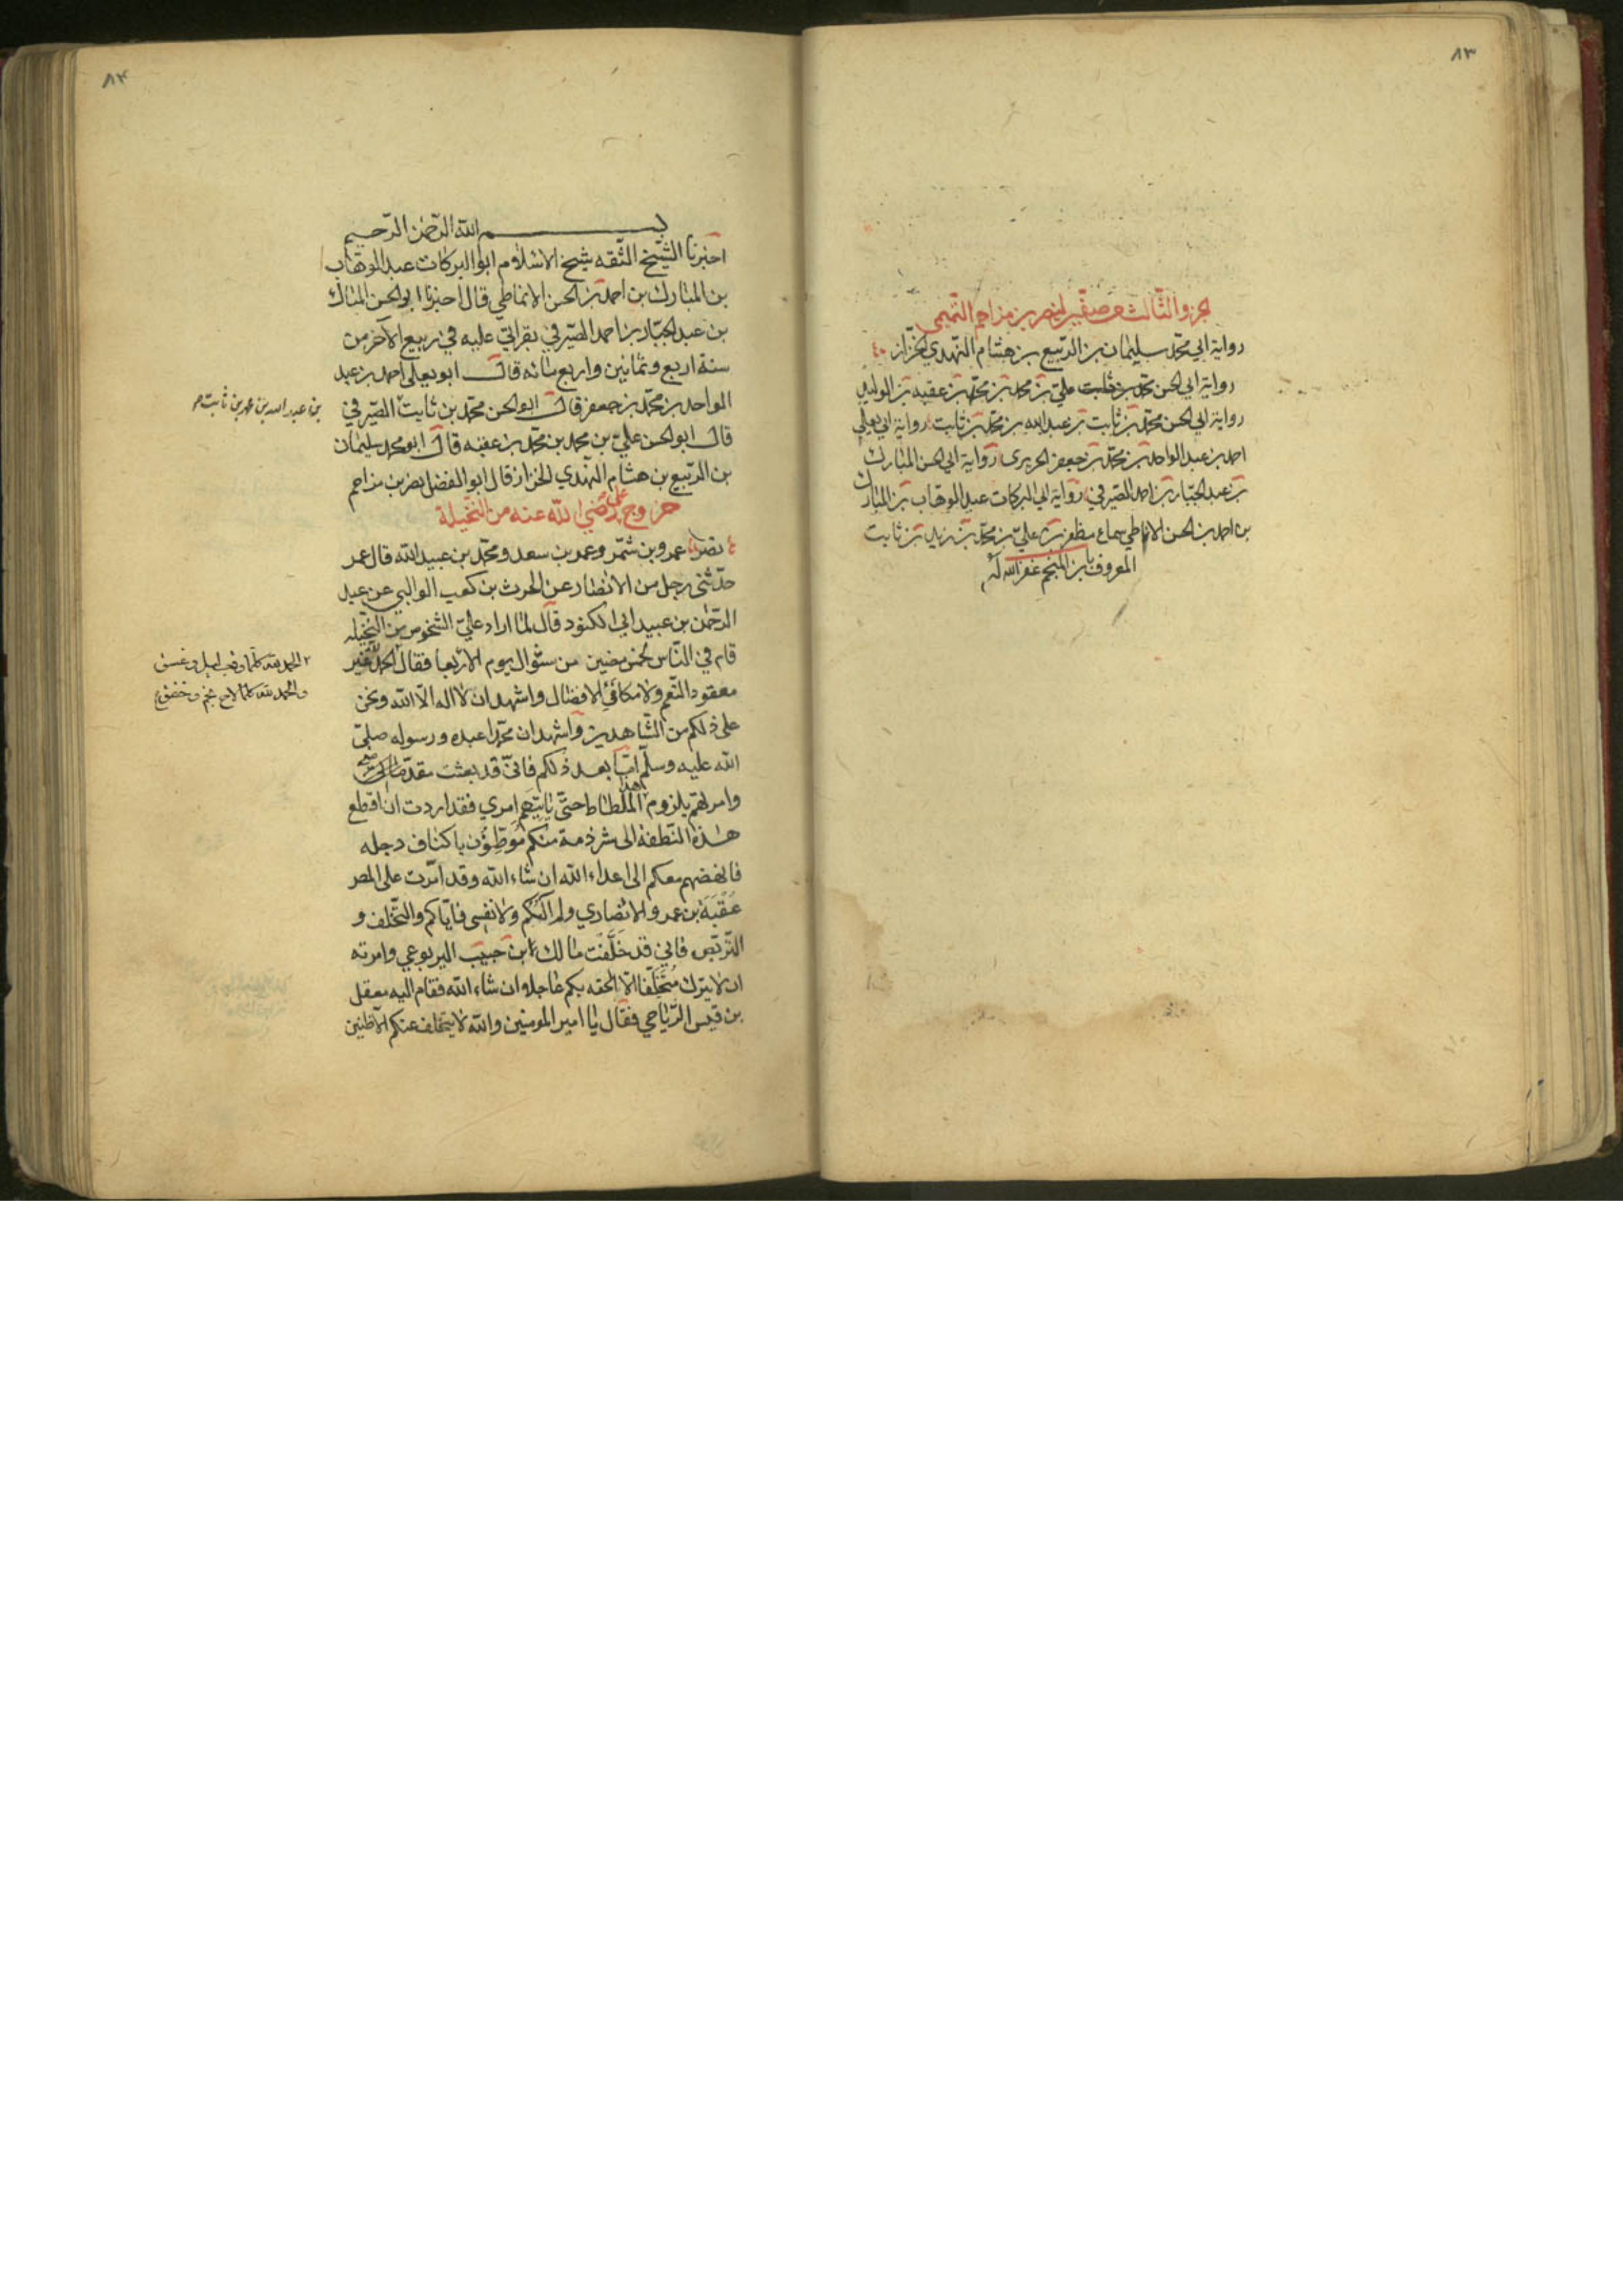 ٨٣
الجزء الثالث من صفين لنصر بن مزاحم التميمي
رواية ابي محمد سليمان بن الربيع بن هشام النهدي الخزاز
رواية ابي الحسن علي بن محمد بن محمد بن عقبة بن الوليد
رواية ابي الحسن محمد بن ثابت بن عبد الله بن محمد بن ثابت رواية ابي يعلى
احمد بن عبد الواحد بن محمد بن جعفر الحريري رواية ابي الحسن المبارك
بن عبد الجبار بن احمد الصيرفي رواية ابي البركات عبد الوهاب بن المبارك
بن احمد بن الحسن الانماطي سماع مظفر بن علي بن محمد بن زيد بن ثابت
المعروف بابن المنجم غفر الله له
٨٤
بسم الله الرحمن الرحيم
اخبرنا الشيخ الثقه شيخ الاسلام ابو البركات عبد الوهاب
بن المبارك بن احمد بن الحسن الانماطي قال اخبرنا ابو الحسن المبارك
بن عبد الجبار بن احمد الصيرفي بقراتي عليه في ربيع الآخر من
سنة اربع وثمانين واربع مائه قال ابو يعلى احمد بن عبد
الواحد بن محمد بن جعفر قال ابو الحسن محمد بن ثابت الصيرفي
بن عبد الله بن محمد بن ثابت
قال ابو الحسن علي بن محمد بن محمد بن عقبه قال ابو محمد سليمان
بن الربيع بن هشام النهدي الخزاز قال ابو الفضل نصر بن مزاحم
خروج علي رضي الله عنه من النخيلة
نصر عمرو بن شمر وعمر بن سعد ومحمد بن عبيد الله قال عمر
حدثني رجل من الانصار عن الحرث بن كعب الوالبي عن عبد
الرحمن بن عبيد ابي الكنود قال لما اراد علي الشخوص من النخيله
قام في الناس لخمس مضين من شوال يوم الاربعا فقال الحمد لله غير
٢ الحمد لله كلما وقب ليل وغسق
والحمد لله كلما لاح نجم وخفق
معقود النعم ولا مكافئ الافضال واشهد ان لا اله الا الله ونحن
على ذلكم من الشاهدين واشهد ان محمدا عبده ورسوله صلى
الله عليه وسلم اما بعد ذلكم فاني قد بعثت مقدماتي
وامرتهم بلزوم هذا الملطاط حتى ياتيهم امري فقد اردت ان اقطع
هذه النطفة الى شرذمة منكم موطنون باكناف دجله
فانهضهم معكم الى اعداء الله ان شاء الله وقد امرت على المصر
عقبة بن عمرو الانصاري ولم آلكم ولا نفسي فاياكم والتخلف و
التربص فاني قد خلفت مالك ابن حبيب اليربوعي وامرته
ان لا يترك متخلفا الا الحقه بكم عاجلا ان شاء الله فقام اليه معقل
بن قيس الرياحي فقال يا امير المومنين والله لا يتخلف عنكم الا ظنين